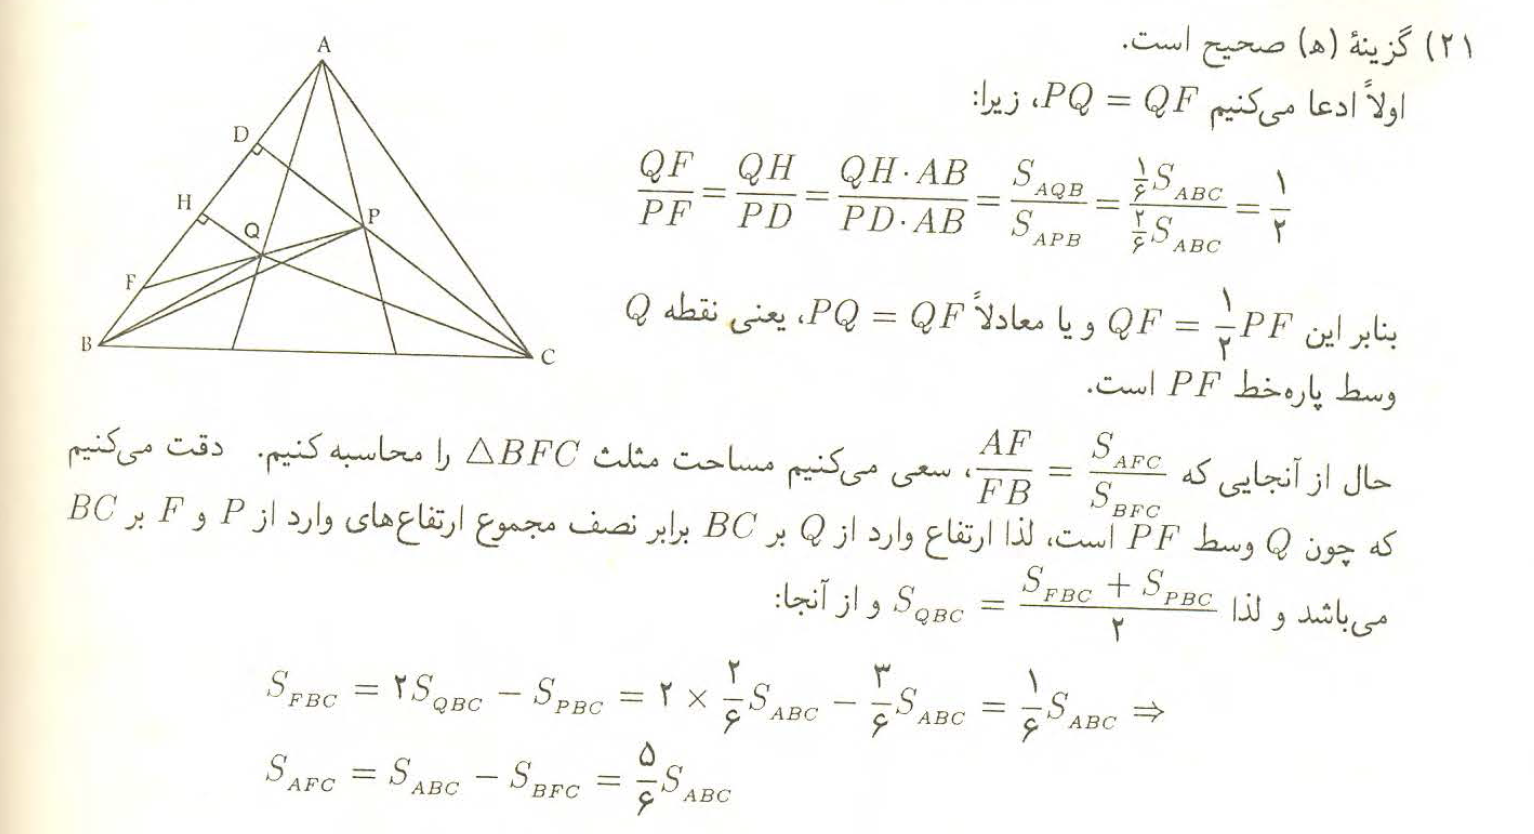 ۲۱) گزینهٔ (ه) صحیح است.
اولاً ادعا می‌کنیم PQ = QF، زیرا:
QF/PF = QH/PD = QH·AB/PD·AB = S_AQB/S_APB = ۱/۶ S_ABC / ۲/۶ S_ABC = ۱/۲
بنابر این QF = ۱/۲ PF و یا معادلاً PQ = QF، یعنی نقطه Q
وسط پاره‌خط PF است.
A
D
H
P
Q
F
B
C
حال از آنجایی که AF/FB = S_AFC/S_BFC، سعی می‌کنیم مساحت مثلث △BFC را محاسبه کنیم. دقت می‌کنیم
که چون Q وسط PF است، لذا ارتفاع وارد از Q بر BC برابر نصف مجموع ارتفاع‌های وارد از P و F بر BC
می‌باشد و لذا S_QBC = (S_FBC + S_PBC)/۲ و از آنجا:
S_FBC = ۲S_QBC − S_PBC = ۲ × ۲/۶ S_ABC − ۳/۶ S_ABC = ۱/۶ S_ABC ⇒
S_AFC = S_ABC − S_BFC = ۵/۶ S_ABC